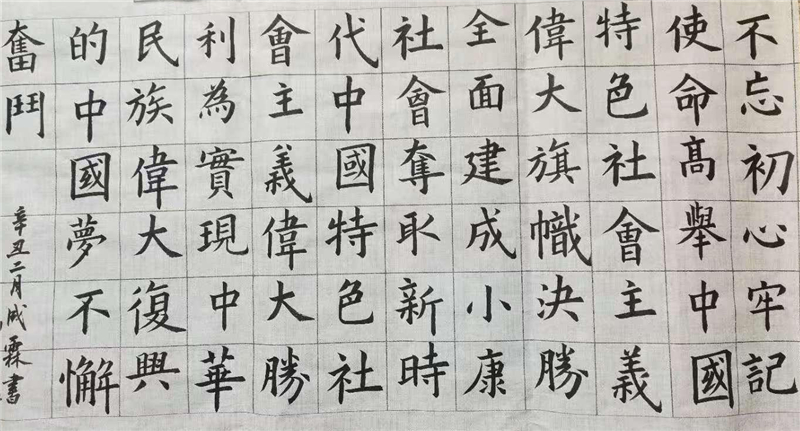 不忘初心牢記
使命高舉中國
特色社會主義
偉大旗幟決勝
全面建成小康
社會奪取新時
代中國特色社
會主義偉大勝
利為實現中華
民族偉大復興
的中國夢不懈
奮鬥
辛丑二月成霖書